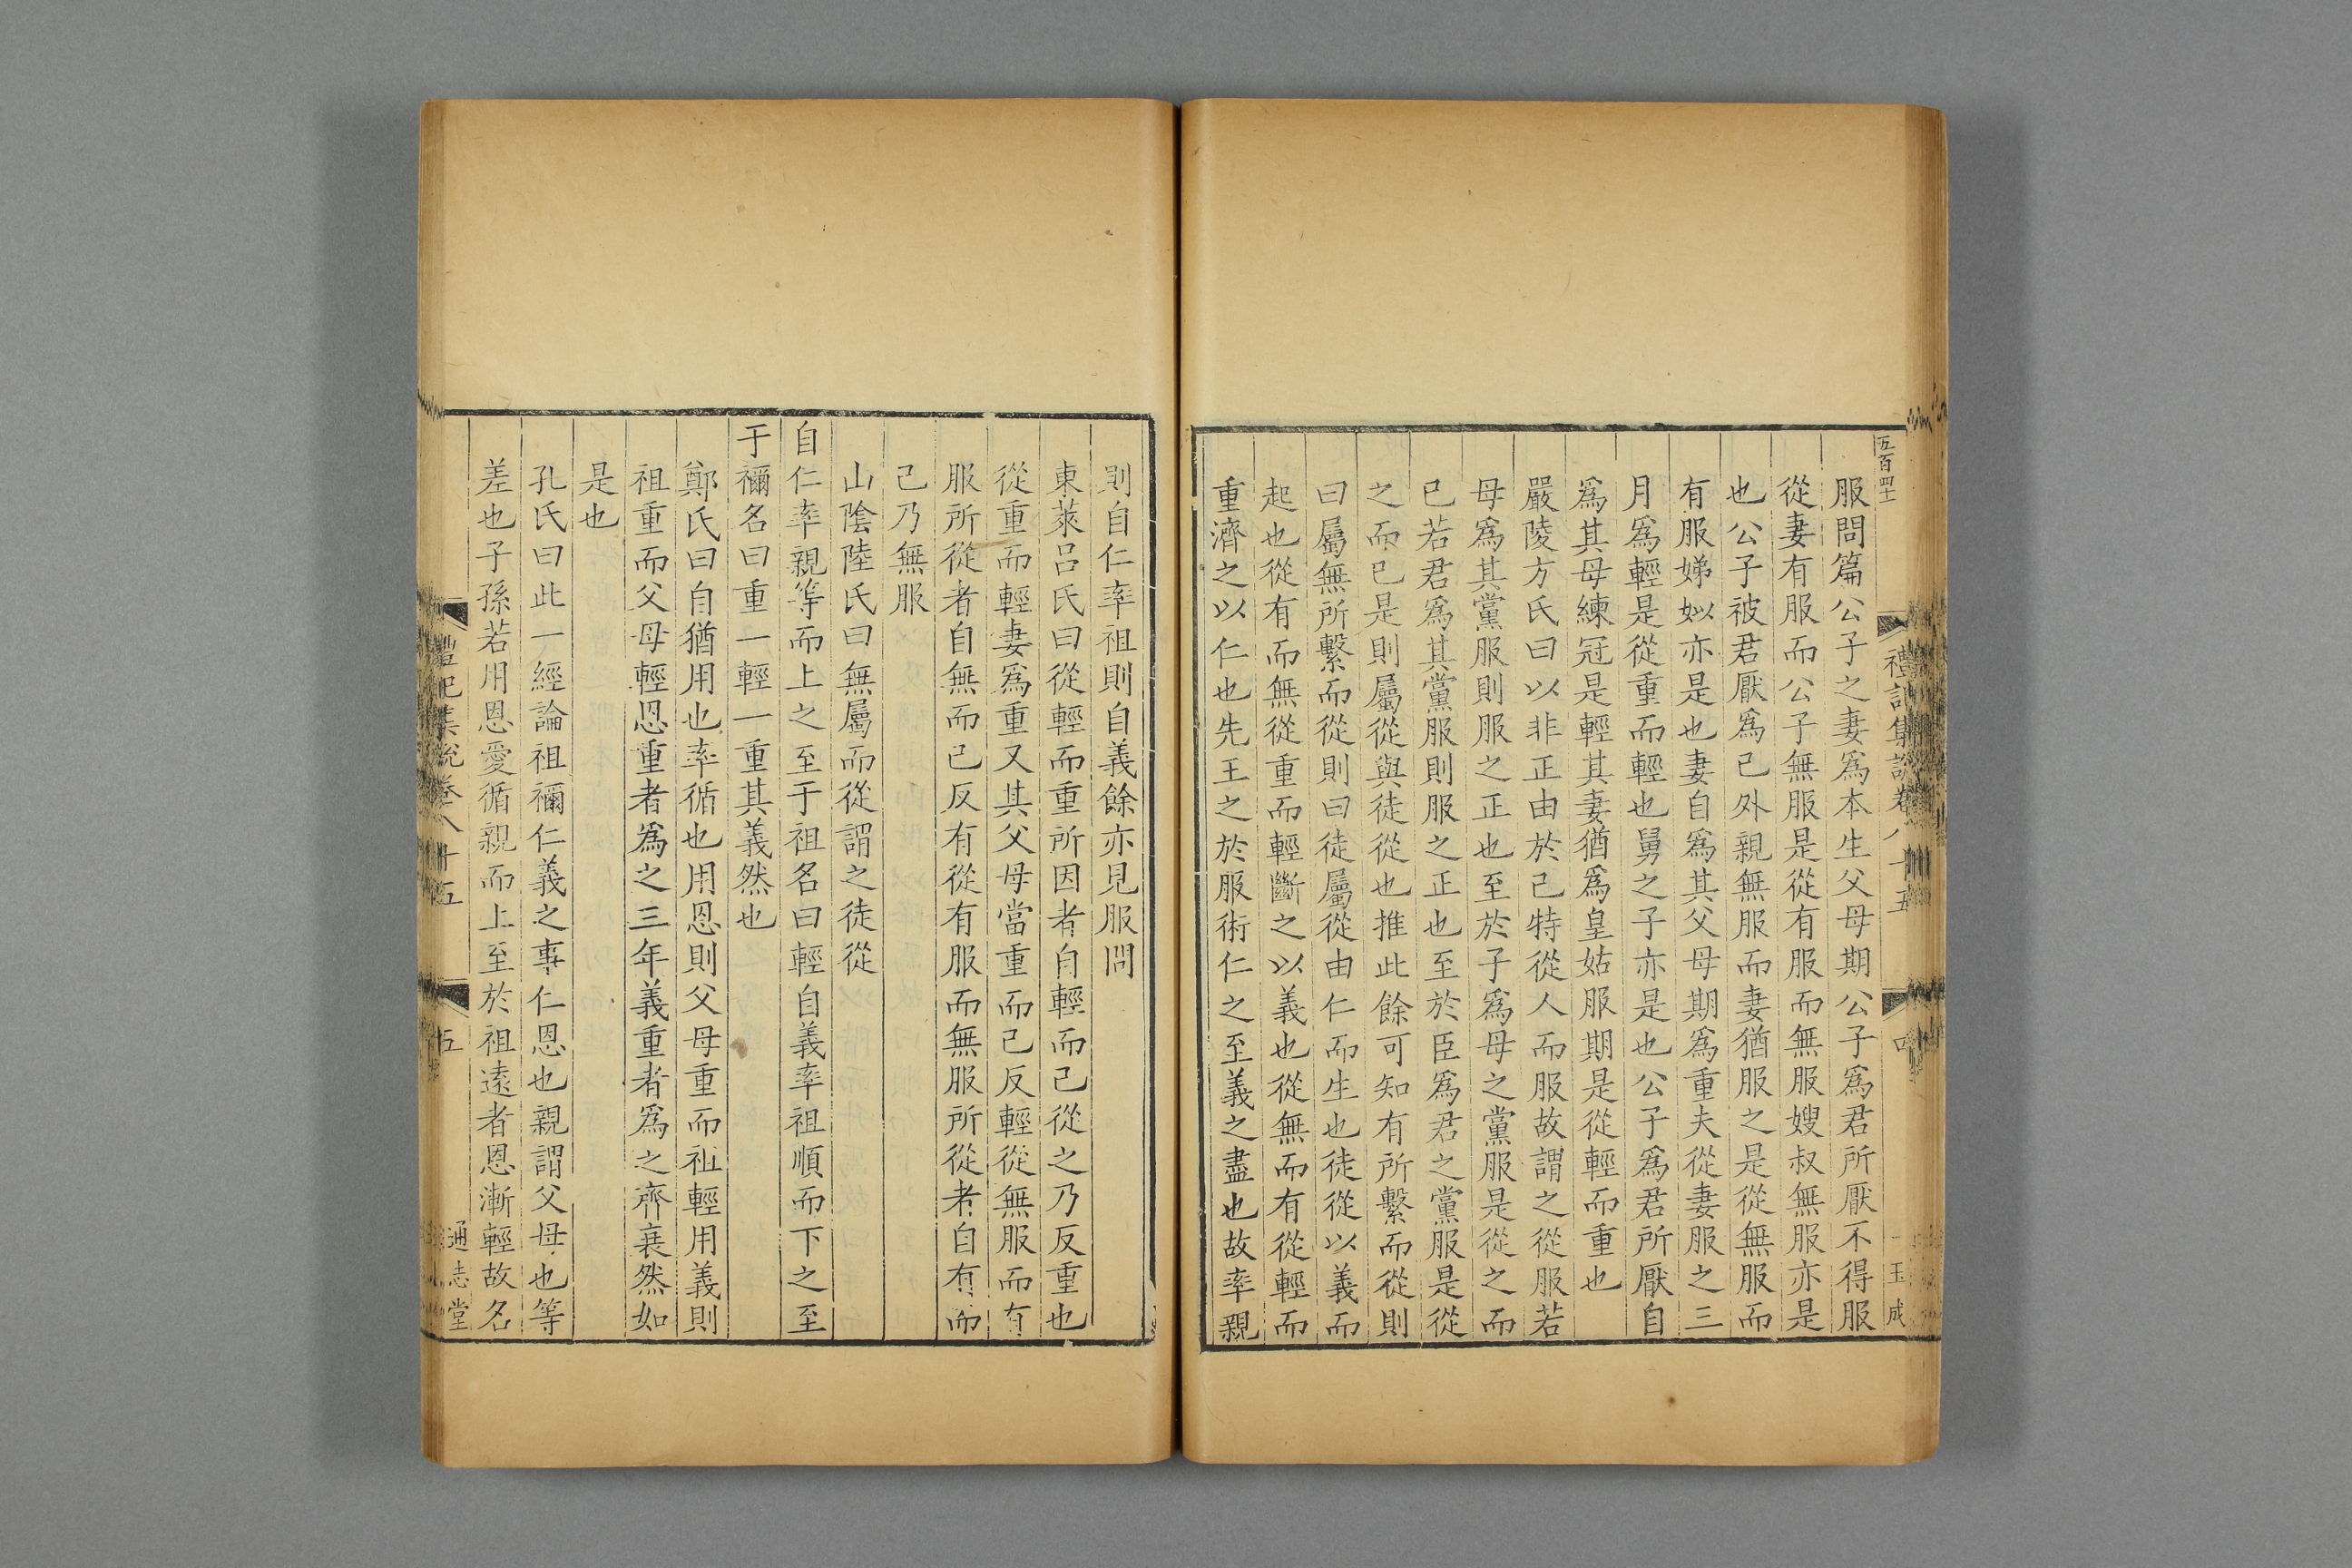 五百四十
禮記集說卷八十五
四
玉成
服問篇公子之妻爲本生父母期公子爲君所厭不得服
從妻有服而公子無服是從有服而無服嫂叔無服亦是
也公子被君厭爲己外親無服而妻猶服之是從無服而
有服娣姒亦是也妻自爲其父母期爲重夫從妻服之三
月爲輕是從重而輕也舅之子亦是也公子爲君所厭自
爲其母練冠是輕其妻猶爲皇姑服期是從輕而重也
嚴陵方氏曰以非正由於己特從人而服故謂之從服若
母爲其黨服則服之正也至於子爲母之黨服是從之而
已若君爲其黨服則服之正也至於臣爲君之黨服是從
之而已是則屬從與徒從也推此餘可知有所繫而從則
曰屬無所繫而從則曰徒屬從由仁而生也徒從以義而
起也從有而無從重而輕斷之以義也從無而有從輕而
重濟之以仁也先王之於服術仁之至義之盡也故率親
則自仁率祖則自義餘亦見服問
東萊呂氏曰從輕而重所因者自輕而己從之乃反重也
從重而輕妻爲重又其父母當重而己反輕從無服而有
服所從者自無而己反有從有服而無服所從者自有而
己乃無服
山陰陸氏曰無屬而從謂之徒從
自仁率親等而上之至于祖名曰輕自義率祖順而下之至
于禰名曰重一輕一重其義然也
鄭氏曰自猶用也率循也用恩則父母重而祖輕用義則
祖重而父母輕恩重者爲之三年義重者爲之齊衰然如
是也
孔氏曰此一經論祖禰仁義之事仁恩也親謂父母也等
差也子孫若用恩愛循親而上至於祖遠者恩漸輕故名
禮記集說卷八十五
五
通志堂